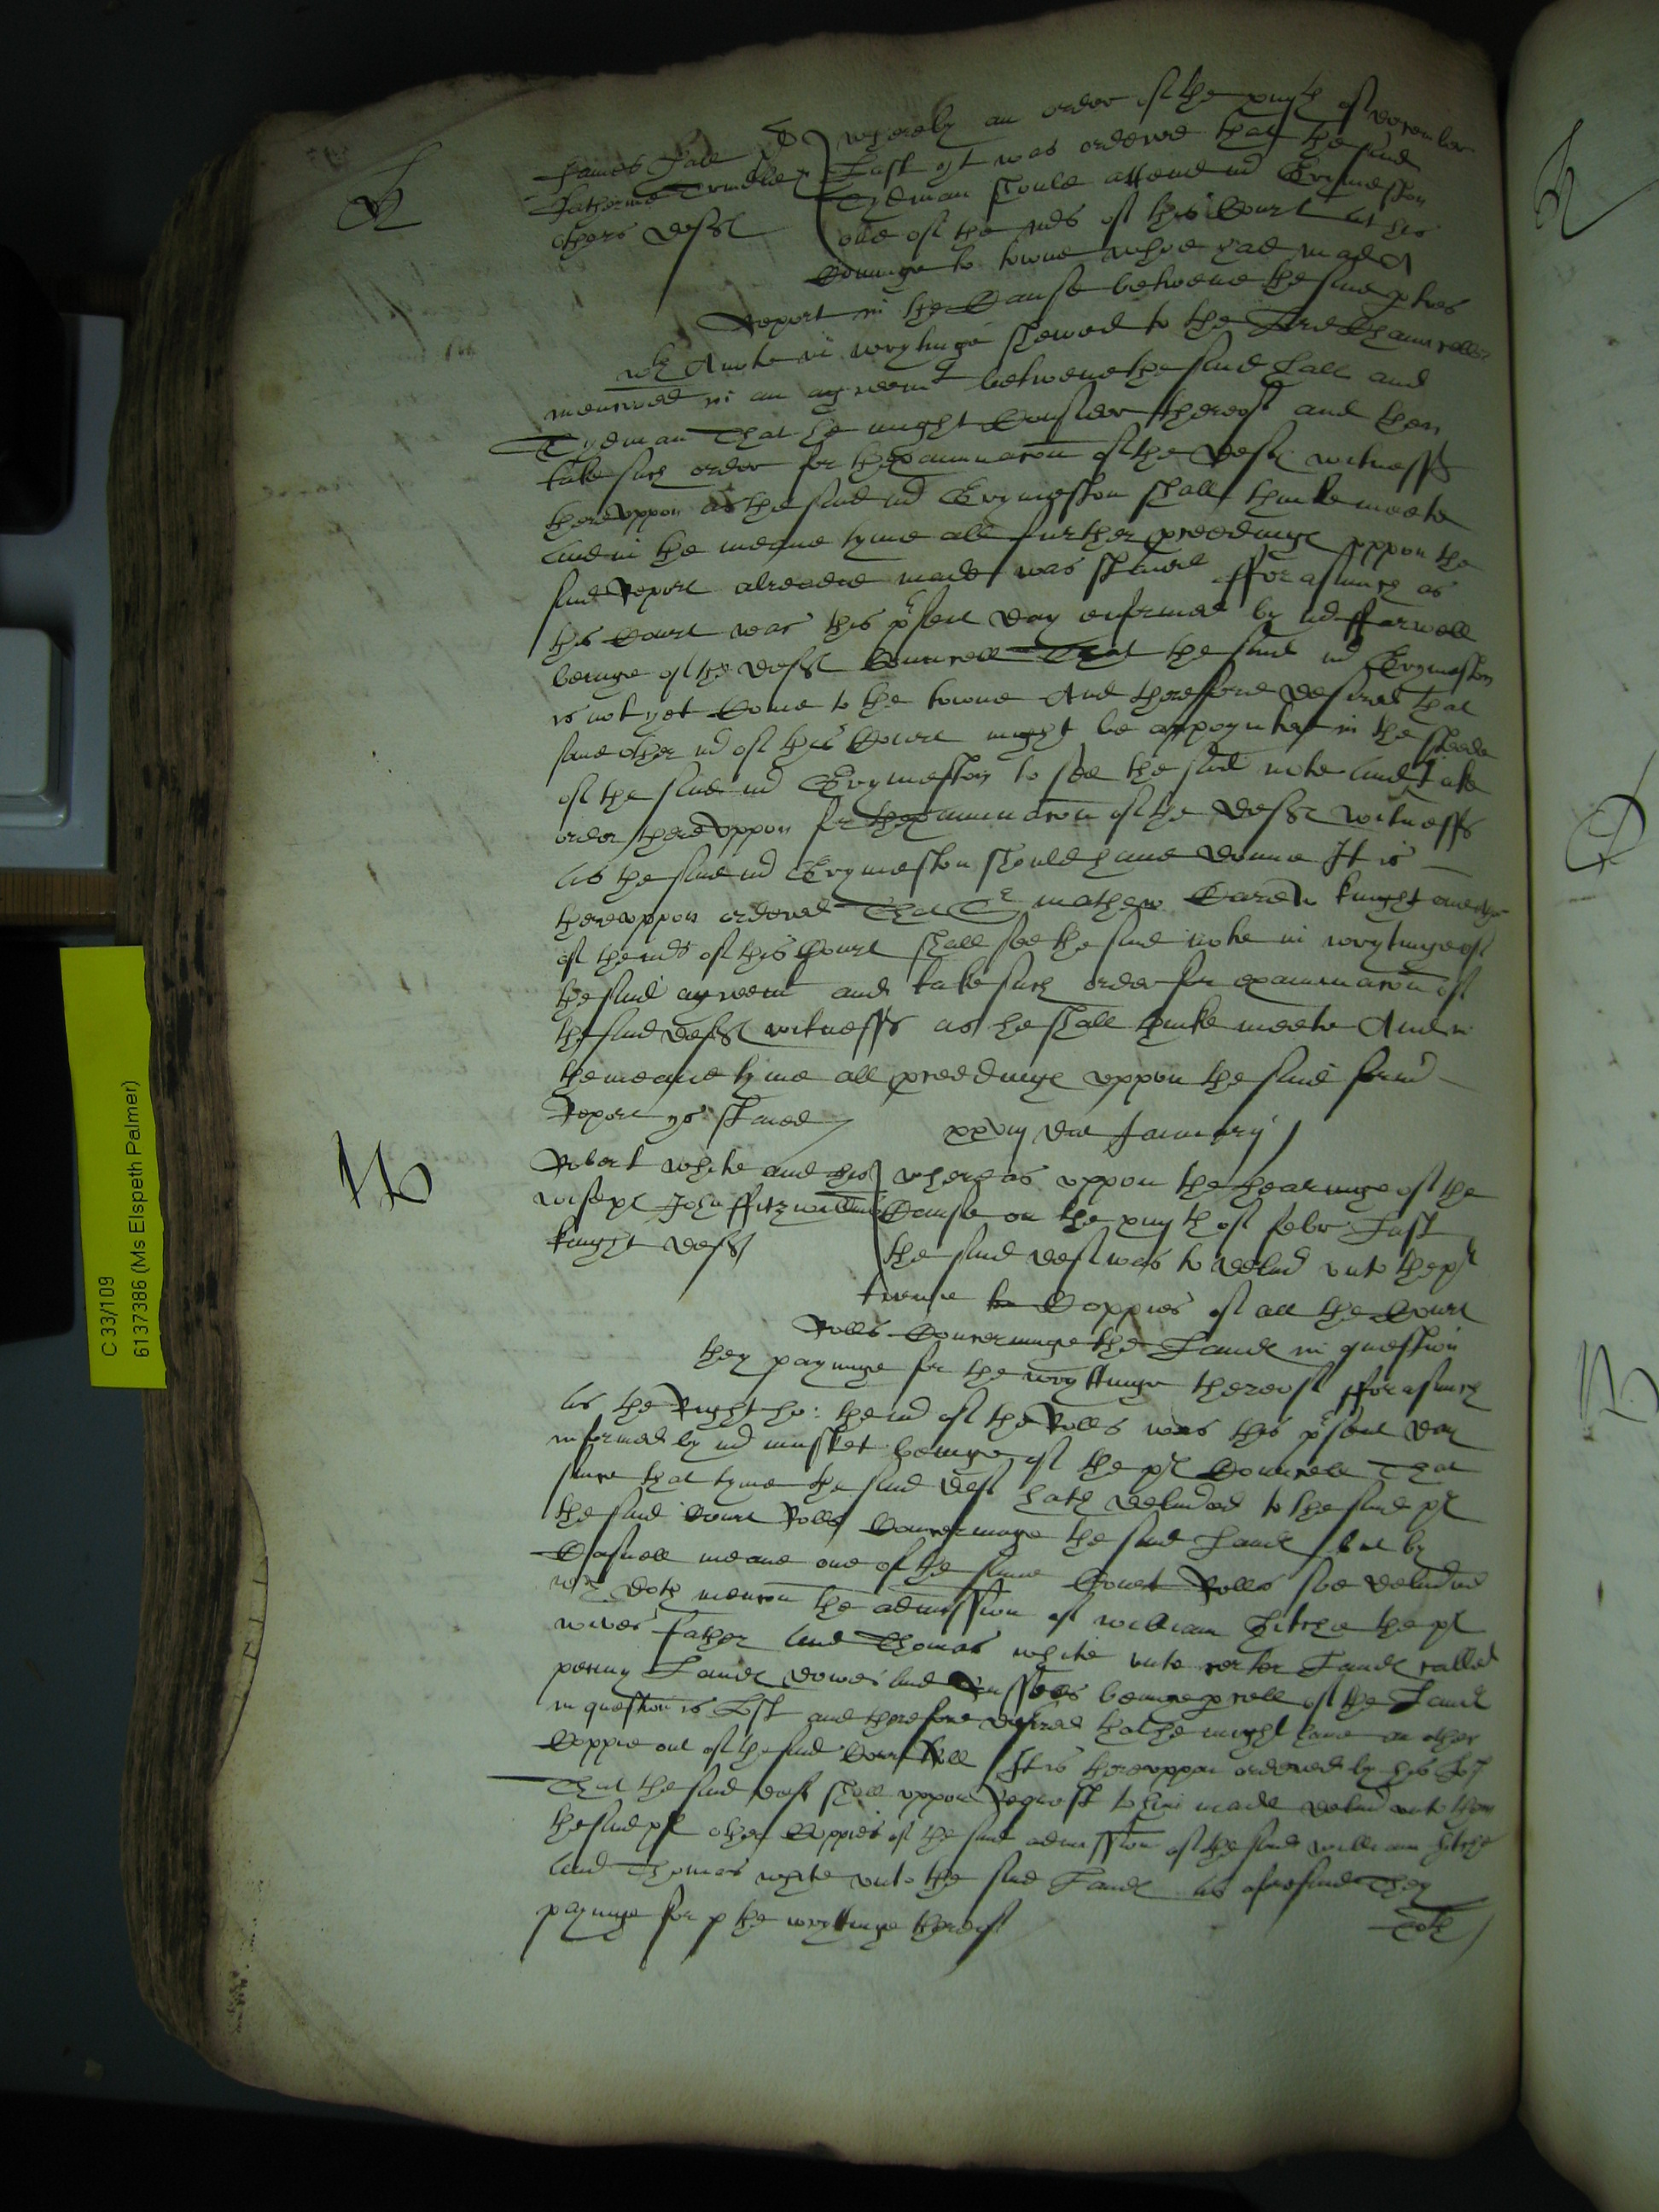 H
James Hall
Katherine
others defts
whereby an order of the xiiijth of December
Last yt was ordered that the said
Tydman should attend mr Evymeston
one of the mrs of this Court at his
Cominge to towne whoe had made A
Report in the Cause betweene the said pties
wth A note in wrytinge shewed to the Lord Chauncellor
mencoed in an agreemt betweene the said Hall and
Tydman That he might Consider thereof and then
take such order for thexaminacon of the defts witnesses
thereuppon as the said mr Evymeston shall thinke meete
And in the meane tyme all further proceedinge uppon the
said Report alreadie made was staied fforasmuch as
this Court was this psent day enformed by mr ffarwell
beinge of the defts Councell That the said mr Evymeston
is not yet Come to the towne And therefore desired that
some other mr of this Court might be appoynted in the steede
of the said mr Evymeston to see the said note and take
order thereuppon for thexaminacon of the defts witnesses
As the said mr Evymeston should have donne It is
thereuppon ordered That Sr mathew Carew knight one
of the mrs of this Court shall see the said note in wrytinge of
the said agreemt and take such order for examinacon of
the said defts witnesses as he shall thinke meete And in
the meane tyme all proceedinge uppon the said form
Report ys staied
xxviij die January
W
Robert white and his
wife pl John ffitzwilliams
knight deft
whereas uppon the hearinge of the
Cause on the xiijth of febr Last
the said deft was to deliv unto the pl
trewe Coppies of all the Court
Rolls Concerninge the Lande in question
they payinge for the wryttinge thereof fforasmuch
As the Right ho: the mr of the Rolls was this psent day
informed by mr musket beinge of the pl Councell That
since that tyme the said deft hath delivered to the said pl
the said Court Rolls Concerninge the said Lande but by
Casuall meane one of the same Court Rolls soe delived
wch doth mencon the admission of william Hitche the pl
wives father And Thomas white unto certen Lande called
Lande downes And beinge pcell of the Lande
in question is Lost and therefore desired that he might have an other
Coppie out of the said Court Roll It is thereuppon ordered by his Lo:
That the said deft shall uppon Request to him made deliv unto them
the said pl other Coppies of the said admission of the said william Hitche
And Thomas white unto the said Lande as aforesaid They
payinge for the wryttinge thereof
C 33/109
6137386 (Ms Elspeth Palmer)